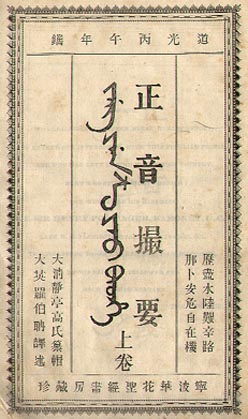 道光丙午年鐫
歷盡水陸艱辛路
那卜安危自在機
正音撮要
上卷
大清靜亭高氏纂輯
大英羅伯聃譯述
寧波華花聖經書房藏珍